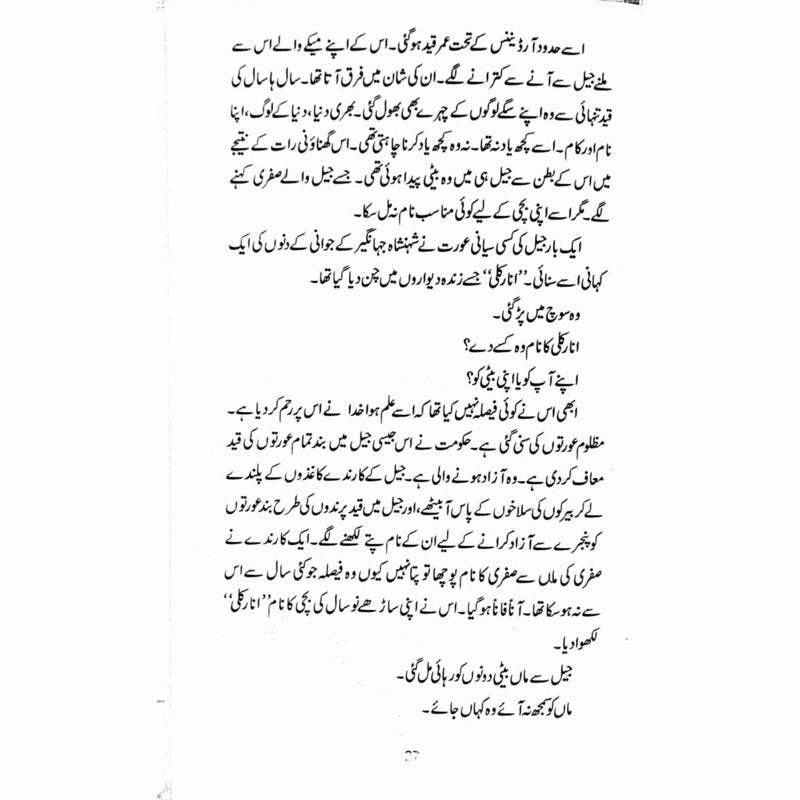 اسے حدود آرڈیننس کے تحت عمر قید ہو گئی۔ اس کے اپنے میکے والے اس سے
ملنے جیل سے آنے سے کترانے لگے۔ ان کی شان میں فرق آتا تھا۔ سال ہا سال کی
قید تنہائی سے وہ اپنے سگے لوگوں کے چہرے بھی بھول گئی۔ بھری دنیا، دنیا کے لوگ، اپنا
نام اور کام۔ اسے کچھ یاد نہ تھا۔ نہ وہ کچھ یاد کرنا چاہتی تھی۔ اس گھناؤنی رات کے نتیجے
میں اس کے بطن سے جیل ہی میں وہ بیٹی پیدا ہوئی تھی۔ جسے جیل والے صفری کہنے
لگے۔ مگر اسے اپنی بچی کے لیے کوئی مناسب نام نہ مل سکا۔
ایک بار جیل کی کسی سیانی عورت نے شہنشاہ جہانگیر کے جوانی کے دنوں کی ایک
کہانی اسے سنائی۔ ”انار کلی“ جسے زندہ دیواروں میں چن دیا گیا تھا۔
وہ سوچ میں پڑ گئی۔
انار کلی کا نام وہ کسے دے؟
اپنے آپ کو یا اپنی بیٹی کو؟
ابھی اس نے کوئی فیصلہ نہیں کیا تھا کہ اسے علم ہوا خدا نے اس پر رحم کر دیا ہے۔
مظلوم عورتوں کی سنی گئی ہے۔ حکومت نے اس جیسی جیل میں بند تمام عورتوں کی قید
معاف کر دی ہے۔ وہ آزاد ہونے والی ہے۔ جیل کے کارندے کاغذوں کے پلندے
لے کر بیرکوں کی سلاخوں کے پاس آ بیٹھے، اور جیل میں قید پرندوں کی طرح بند عورتوں
کو پنجرے سے آزاد کرانے کے لیے ان کے نام پتے لکھنے لگے۔ ایک کارندے نے
صفری کی ماں سے صفری کا نام پوچھا تو پتا نہیں کیوں وہ فیصلہ جو کئی سال سے اس
سے نہ ہو سکا تھا۔ آناً فاناً ہو گیا۔ اس نے اپنی ساڑھے نو سال کی بچی کا نام ”انار کلی“
لکھوا دیا۔
جیل سے ماں بیٹی دونوں کو رہائی مل گئی۔
ماں کو سمجھ نہ آئے وہ کہاں جائے۔